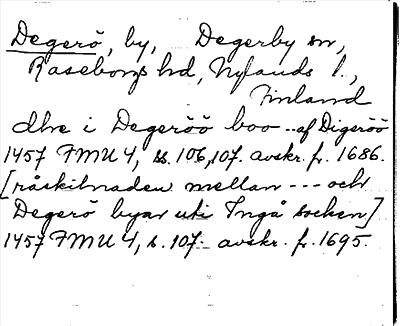 Degerö, by, Degerby sn,
Raseborgs hd, Nylands l.,
Finland
dhe i Degeröö boo .. af Digeröö
1457 FMU 4, ss. 106, 107. avskr. fr. 1686.
[råskilnaden mellan --- och
Degerö byar uti Ingå socken]
1457 FMU 4, s. 107. avskr. fr. 1695.